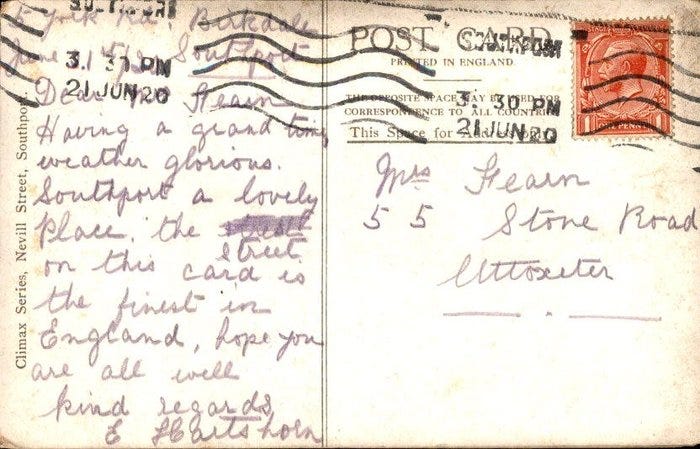 5 York Rd, Birkdale
Southport
June 21
Dear Mrs Hearn
Having a grand time,
weather glorious.
Southport a lovely
place, the
street
on this card is
the finest in
England, hope you
are all well
kind regards
E Hartshorn
Climax Series, Nevill Street, Southport.
SOUTHPORT
3. 30 PM
21 JUN 20
POST CARD
PRINTED IN ENGLAND
THE OPPOSITE SPACE MAY BE USED FOR
CORRESPONDENCE TO ALL COUNTRIES
This Space for Address only.
SOUTHPORT
3. 30 PM
21 JUN 20
1 ONE PENNY 1
Mrs Hearn
55 Stone Road
Uttoxeter